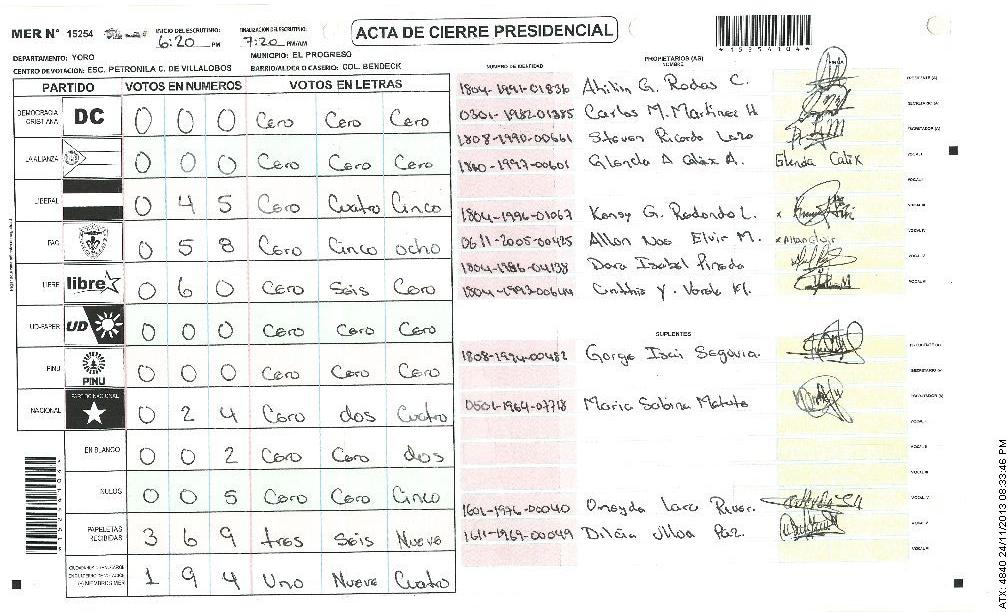 MER N° 15254
INICIO DEL ESCRUTINIO: 6:20 PM
FINALIZACION DEL ESCRUTINIO: 7:20 PM/AM
ACTA DE CIERRE PRESIDENCIAL
DEPARTAMENTO: YORO
MUNICIPIO: EL PROGRESO
CENTRO DE VOTACION: ESC. PETRONILA C. DE VILLALOBOS
BARRIO/ALDEA O CASERIO: COL. BENDECK
PARTIDO VOTOS EN NUMEROS VOTOS EN LETRAS
DEMOCRACIA CRISTIANA DC 0 0 0 Cero Cero Cero
LA ALIANZA 0 0 0 Cero Cero Cero
LIBERAL 0 4 5 Cero Cuatro Cinco
PAC 0 5 8 Cero Cinco ocho
LIBRE libre 0 6 0 Cero Seis Cero
UD-FAPER UD 0 0 0 Cero Cero Cero
PINU PINU 0 0 0 Cero Cero Cero
NACIONAL PARTIDO NACIONAL 0 2 4 Cero dos Cuatro
EN BLANCO 0 0 2 Cero Cero dos
NULOS 0 0 5 Cero Cero Cinco
PAPELETAS RECIBIDAS 3 6 9 tres Seis Nueve
1 9 4 Uno Nueve Cuatro
NUMERO DE IDENTIDAD
PROPIETARIOS (AS)
NOMBRE
FIRMA
1804-1991-01836 G. Rodas C.
PRESIDENTE (A)
0301-1982-01385 Carlos M. Martinez H
SECRETARIO (A)
1808-1990-00661 Steven Ricardo Lazo
ESCRUTADOR (A)
1800-1997-00601 Glenda A Calix A. Glenda Calix
VOCAL I
VOCAL II
1804-1996-01067 Kensy G. Redondo L.
VOCAL III
0611-2005-00425 Allan Noe Elvir M. x Allan Elvir
VOCAL IV
1804-1986-04138 Dora Isabel Pineda
VOCAL V
1804-1993-00644 Cinthia Y.
SUPLENTES
1808-1974-00482 Gorge Isai Segovia.
SECRETARIO (A)
0501-1964-07718 Maria Sabina Matute
ESCRUTADOR (A)
VOCAL I
VOCAL II
VOCAL III
1601-1976-00040 Omeyda Lara River.
VOCAL IV
1611-1969-00049 Dilcia Ulloa Paz.
VOCAL V
ATX: 4840 24/11/2013 08:33:46 PM